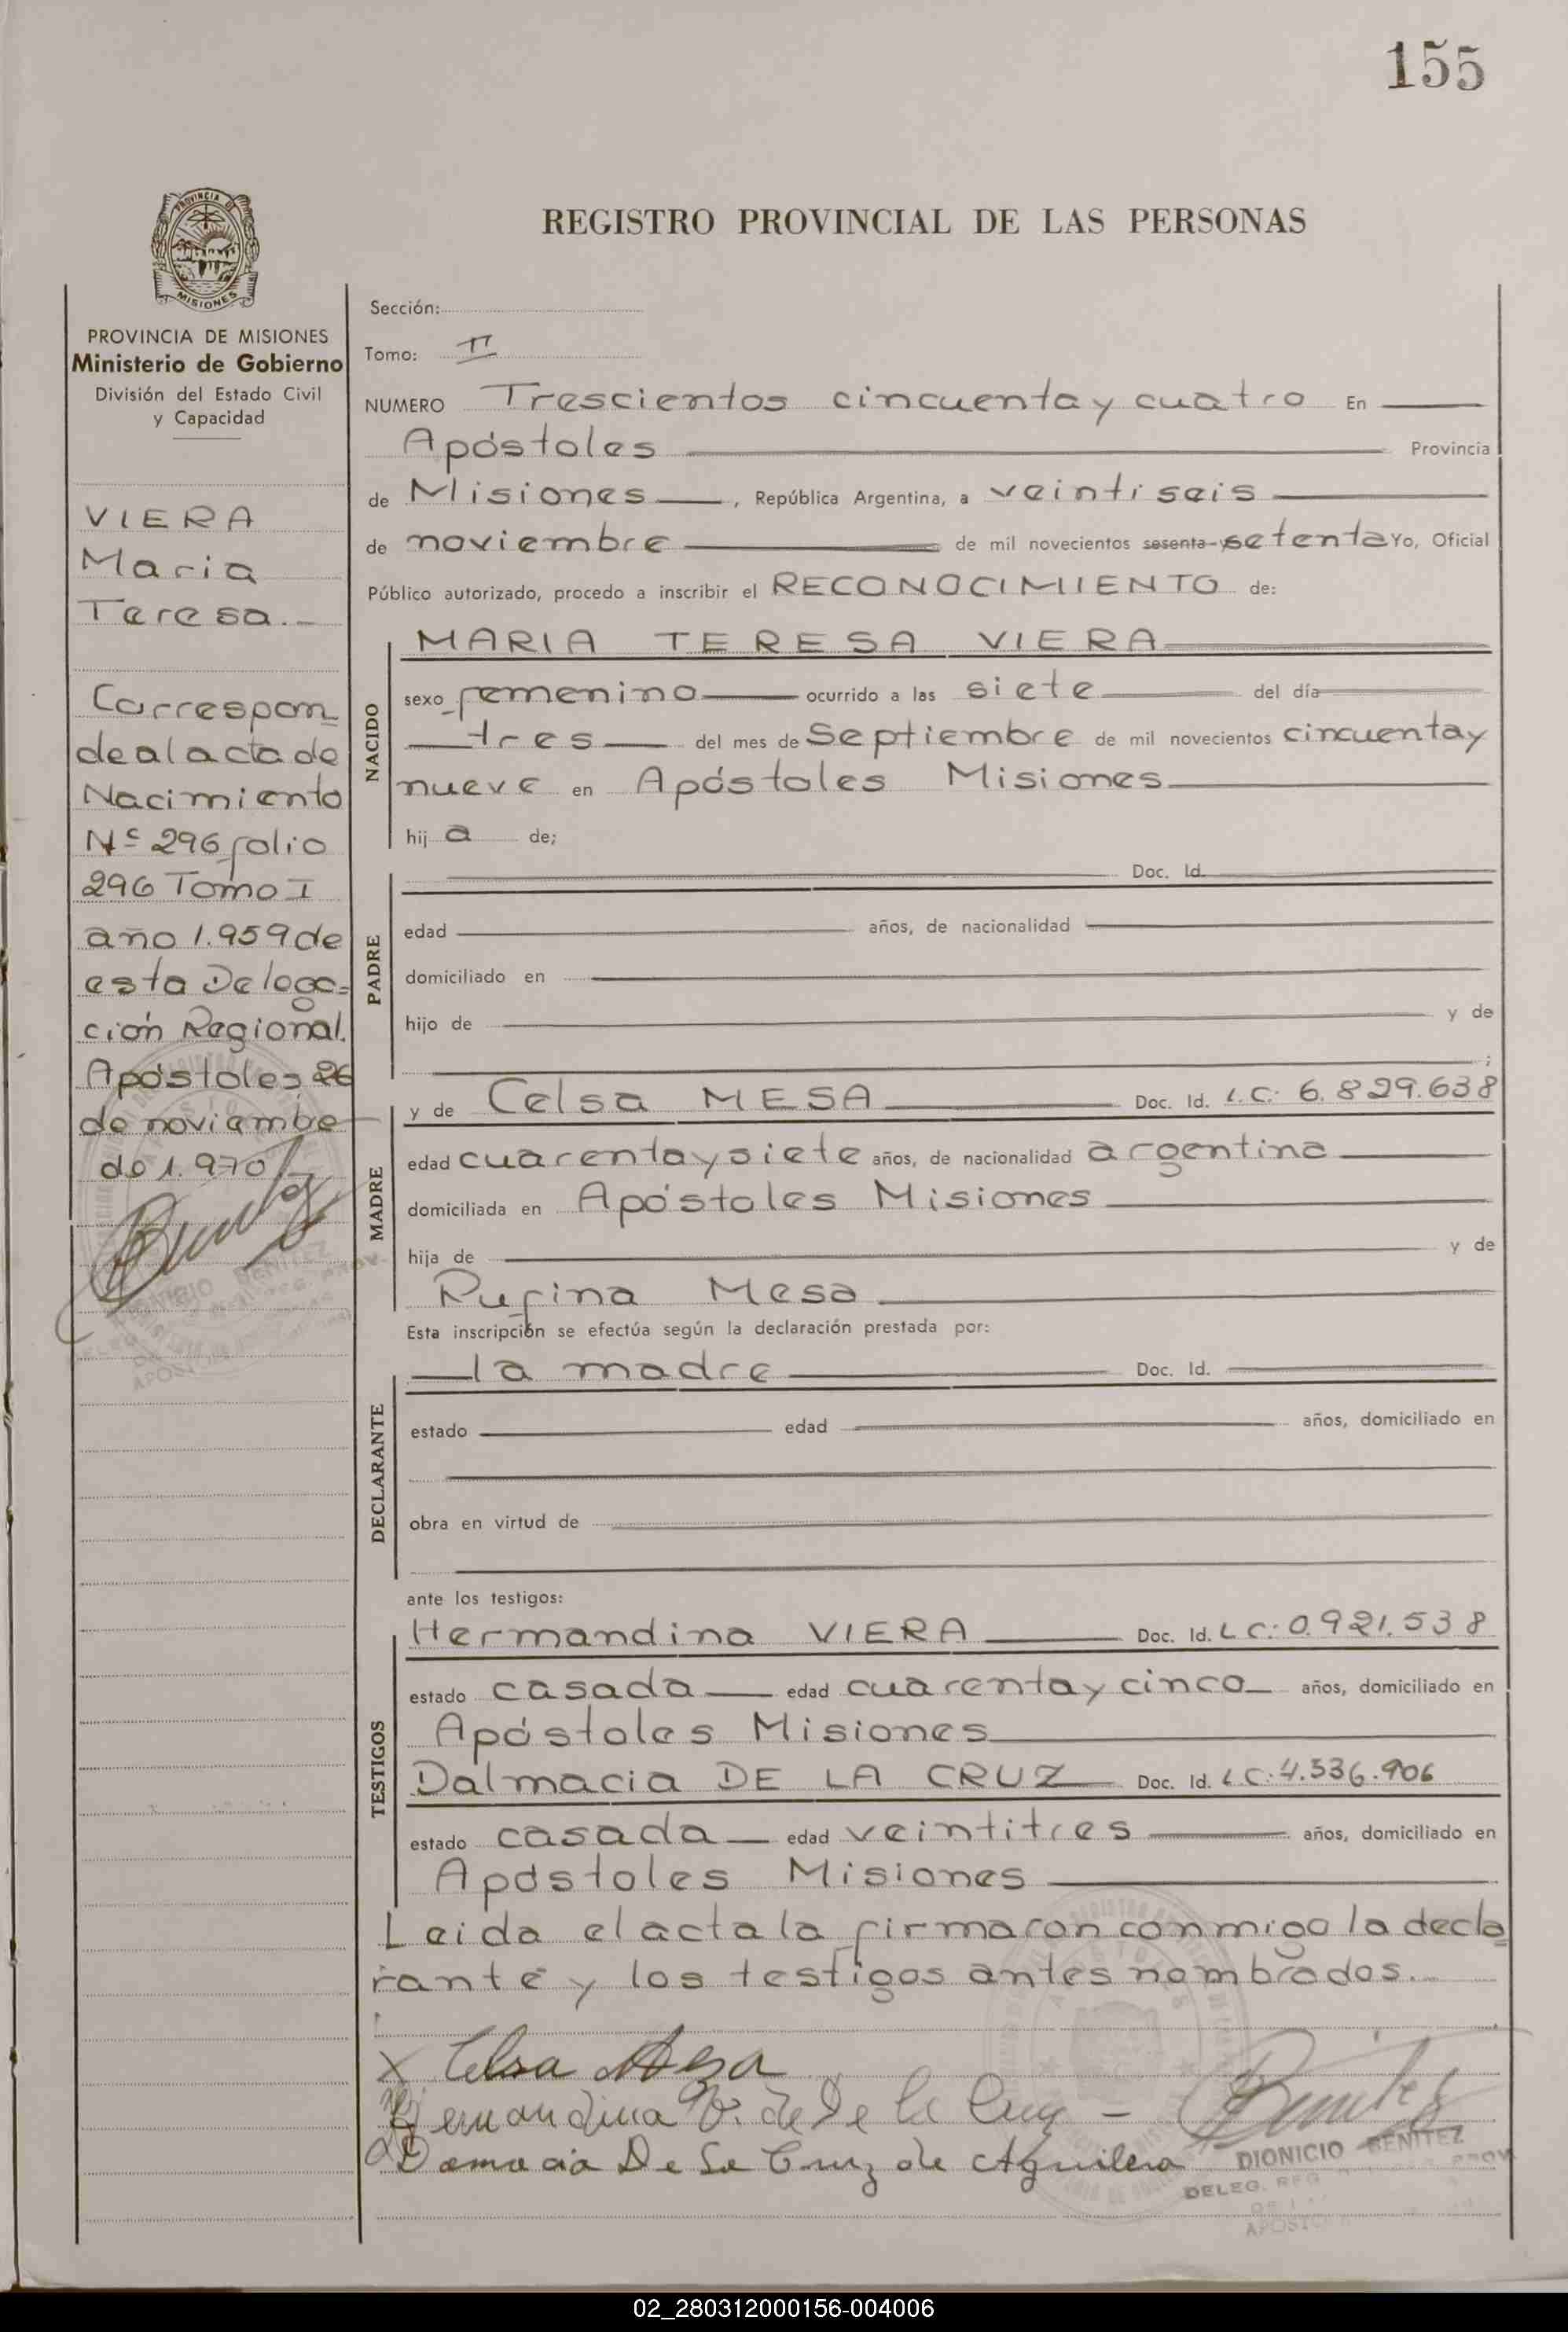 155
PROVINCIA DE
MISIONES
REGISTRO PROVINCIAL DE LAS PERSONAS
PROVINCIA DE MISIONES
Ministerio de Gobierno
División del Estado Civil
y Capacidad
VIERA
Maria
Teresa.-
Correspon=
de al acta de
Nacimiento
Nº 296 folio
296 Tomo I
año 1.959 de
esta Delega=
ción Regional.
Apóstoles, 26
de noviembre
de 1.970
Sección:
Tomo: II
NUMERO Trescientos cincuenta y cuatro En
Apóstoles Provincia
de Misiones, República Argentina, a veintiseis
de noviembre de mil novecientos sesenta- setenta Yo, Oficial
Público autorizado, procedo a inscribir el RECONOCIMIENTO de:
NACIDO
MARIA TERESA VIERA
sexo femenino ocurrido a las siete del día
tres del mes de Septiembre de mil novecientos cincuenta y
nueve en Apóstoles Misiones
hij a de;
PADRE
Doc. Id.
edad años, de nacionalidad
domiciliado en
hijo de y de
;
MADRE
y de Celsa MESA Doc. Id. L.C: 6.829.638
edad cuarenta y siete años, de nacionalidad argentina
domiciliada en Apóstoles Misiones
hija de y de
Rufina Mesa
Esta inscripción se efectúa según la declaración prestada por:
DECLARANTE
la madre Doc. Id.
estado edad años, domiciliado en
obra en virtud de
ante los testigos:
TESTIGOS
Hermandina VIERA Doc. Id. L C: 0.921.538
estado casada edad cuarenta y cinco años, domiciliado en
Apóstoles Misiones
Dalmacia DE LA CRUZ Doc. Id. L C: 4.536.906
estado casada edad veintitres años, domiciliado en
Apóstoles Misiones
Leida el acta la firmaron conmigo la decla
rante y los testigos antes nombrados.-
x Celsa Mesa
Hernandina V. de De la Cruz -
Damacia De La Cruz de Aguilera
Benitez
DIONICIO BENITEZ
DELEG. REG PROV
APOSTO
02_280312000156-004006